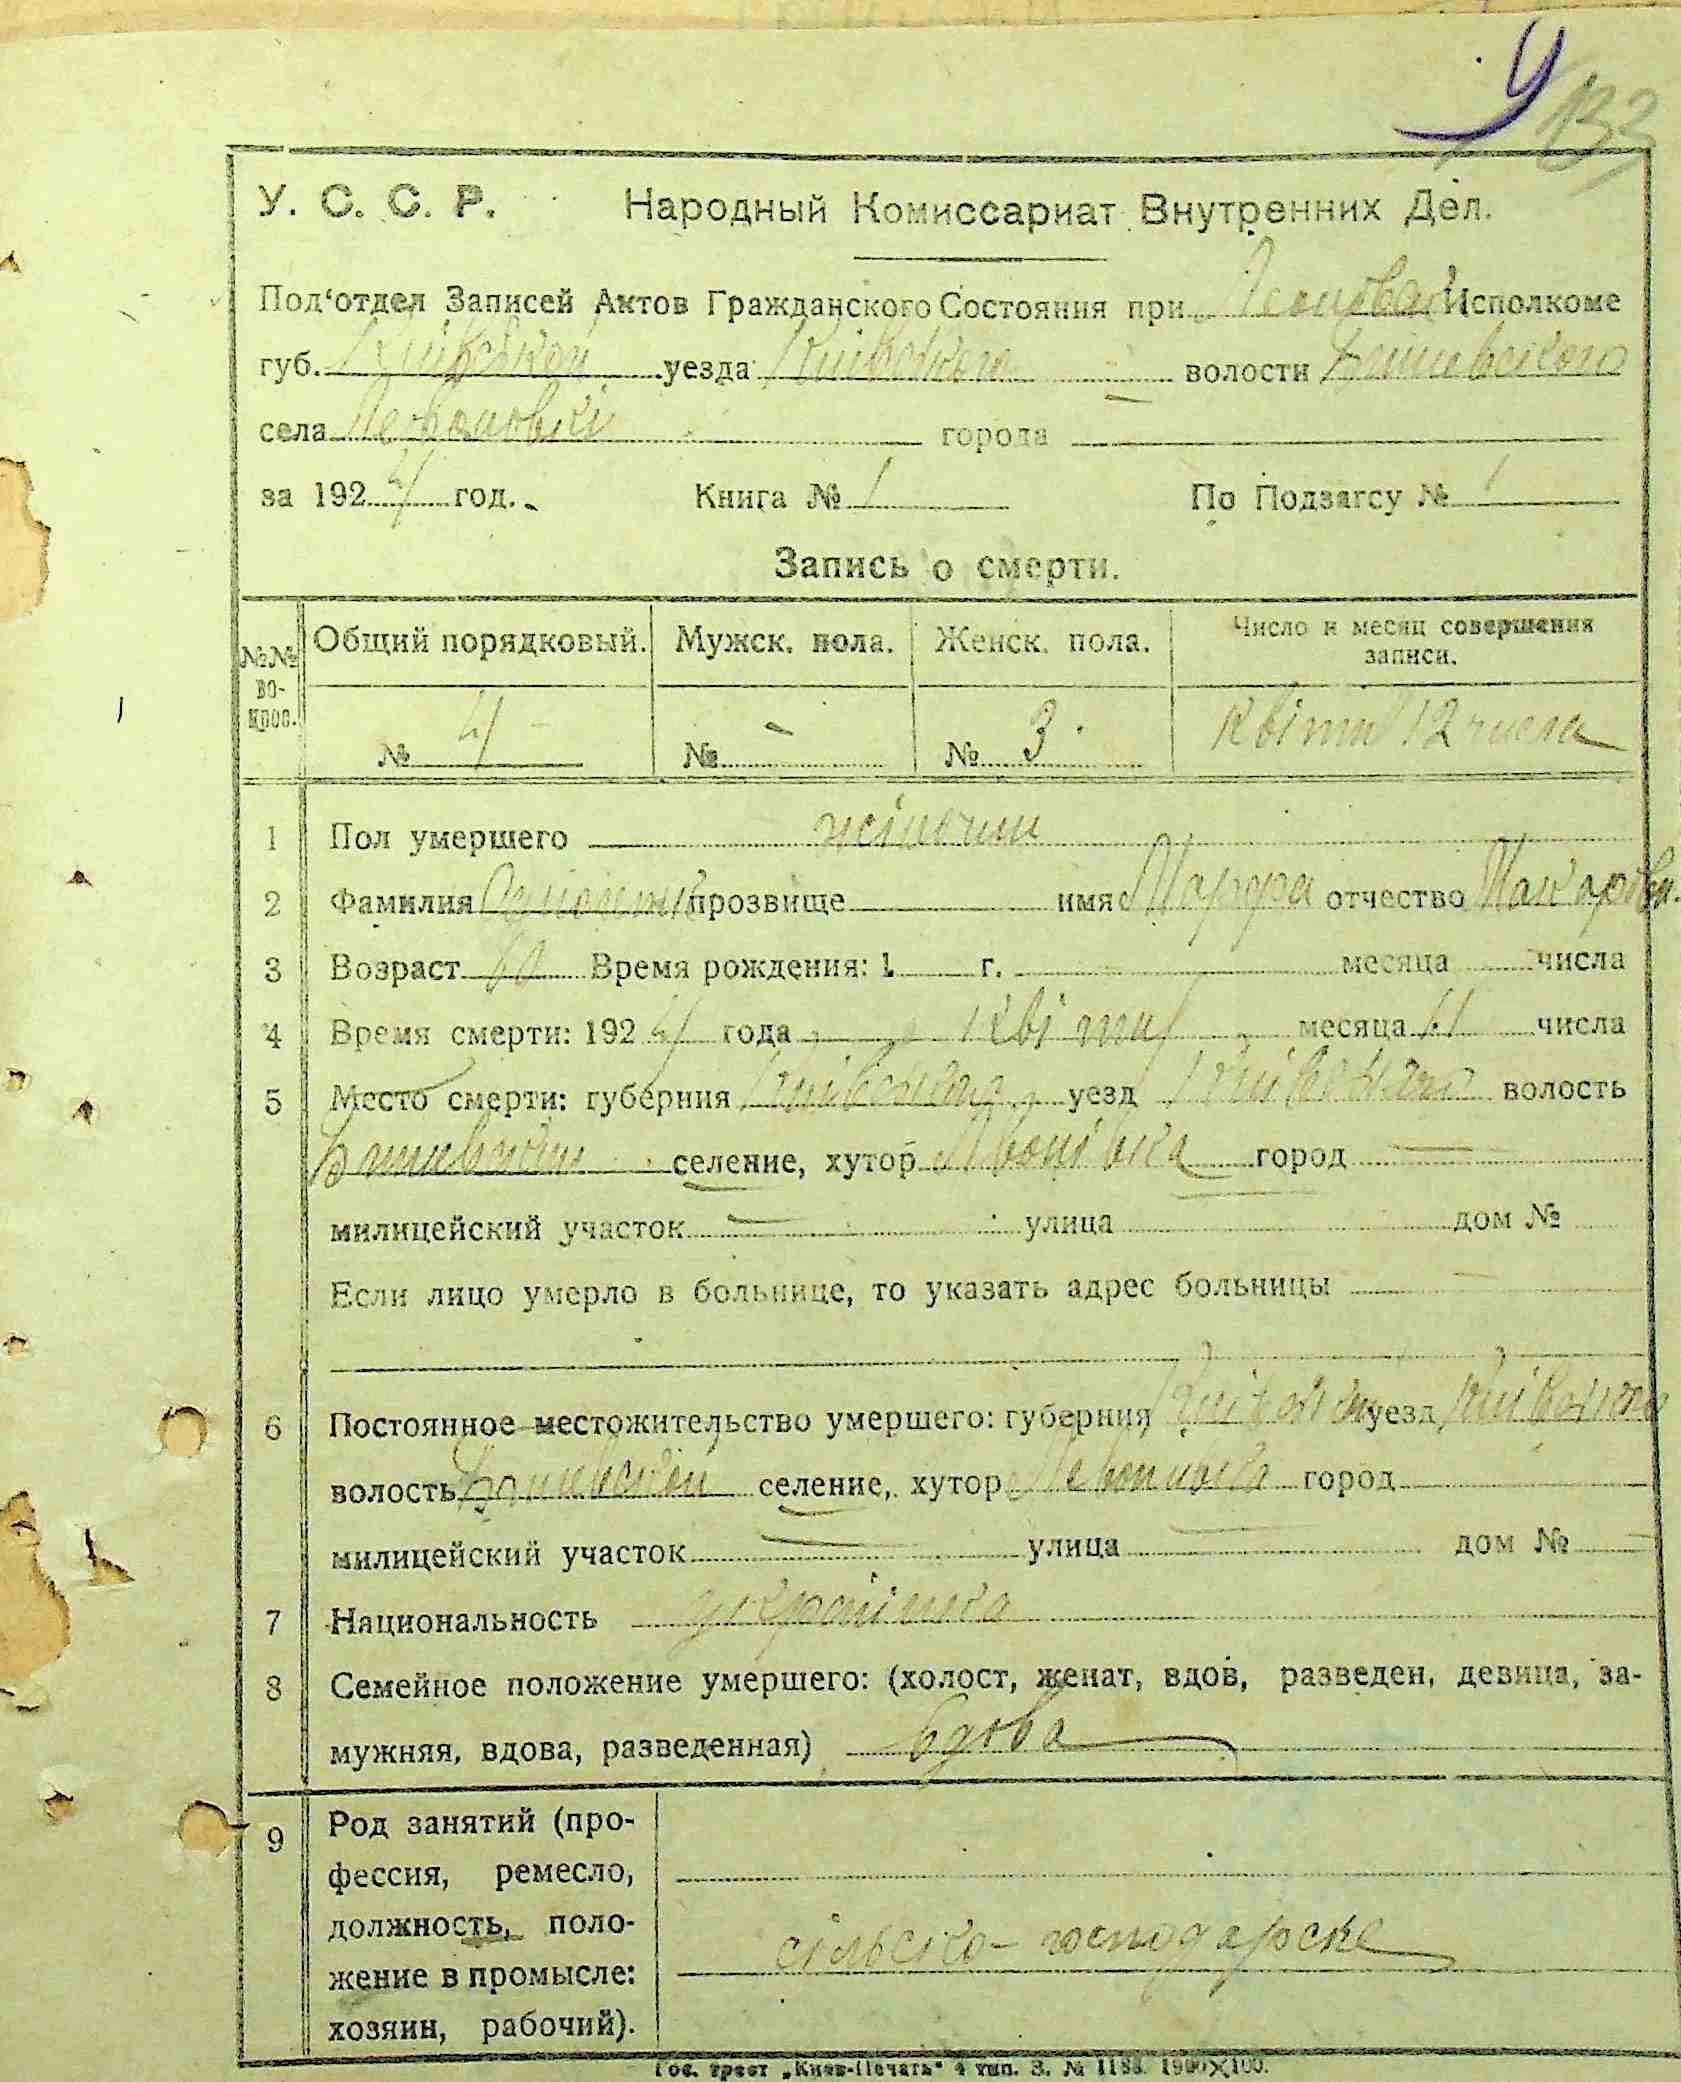 У 133
У. С. С. Р. Народный Комиссариат Внутренних Дел.
Под‘отдел Записей Актов Гражданского Состояния при Исполкоме
губ. Київской уезда Київського волости
села города
за 1924 год. Книга № 1 По Подзагсу № 1
Запись о смерти.
№№ во-прос. Общий порядковый. Мужск. пола. Женск. пола. Число и месяц совершения записи.
№ 4 № - № 3 квітня 12 числа
1 Пол умершего жіночий
2 Фамилия прозвище имя Марфа отчество Макаровна
3 Возраст Время рождения: 1 г. месяца числа
4 Время смерти: 1924 года квітня месяца 11 числа
5 Место смерти: губерния Київська уезд Київський волость
селение, хутор город —
милицейский участок — улица дом №
Если лицо умерло в больнице, то указать адрес больницы —
6 Постоянное местожительство умершего: губерния Київська уезд Київський
волость селение, хутор город
милицейский участок — улица — дом № —
7 Национальность українка
8 Семейное положение умершего: (холост, женат, вдов, разведен, девица, за-
мужняя, вдова, разведенная) вдова
9 Род занятий (про-
фессия, ремесло,
должность, поло-
жение в промысле: сільско-господарске
хозяин, рабочий).
Гос. трест „Киев-Печать“ 4 тип. З. №